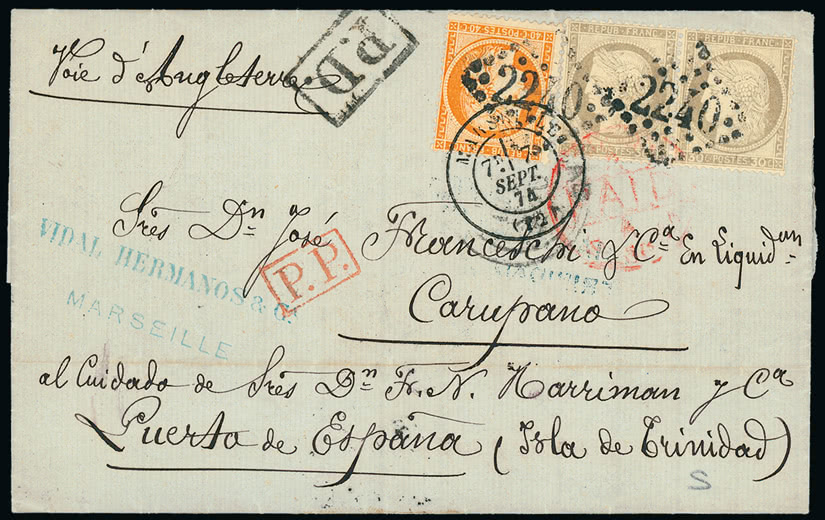 Voie d'Angleterre
P.D.
40 c POSTES 40 c
REPUB. FRANC.
REPUB. FRANC.
POSTES 30 c
2240
2240
MARSEILLE
7 SEPT. 74
(12)
PAID
Srés Dn José Franceschi y Ca En Liquidun
VIDAL HERMANOS & C.
MARSEILLE
P.P.
Carupano
al Cuidado de Srés Dn Fr. N. Harriman y Ca
Puerto de España (Isla de Trinidad)
S